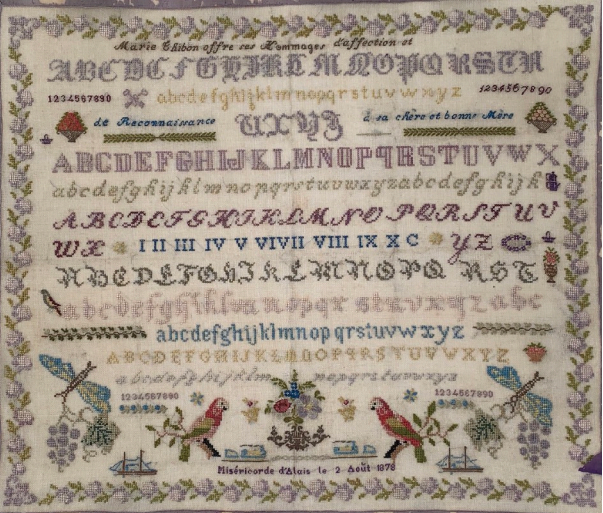 Marie Thibon offre ses Hommages d'affection et
ABCDEFGHIJKLMNOPQRSTU
1234567890 abcdefghijklmnopqrstuvwxyz 1234567890
de Reconnaissance VXYZ à sa chère et bonne Mère
ABCDEFGHIJKLMNOPQRSTUVWX
abcdefghijklmnopqrstuvwxyzabcdefghijk
ABCDEFGHIJKLMNOPQRSTUV
WX I II III IV V VI VII VIII IX X C YZ
ABCDEFGHIJKLMNOPQRST
abcdefghiklmnopqrstuvxyzabc
abcdefghijklmnopqrstuvwxyz
ABCDEFGHIJKLMNOPQRSTUVWXYZ
abcdefghijklmnopqrstuvwxyz
1234567890 1234567890
Miséricorde d'Alais le 2 Août 1878